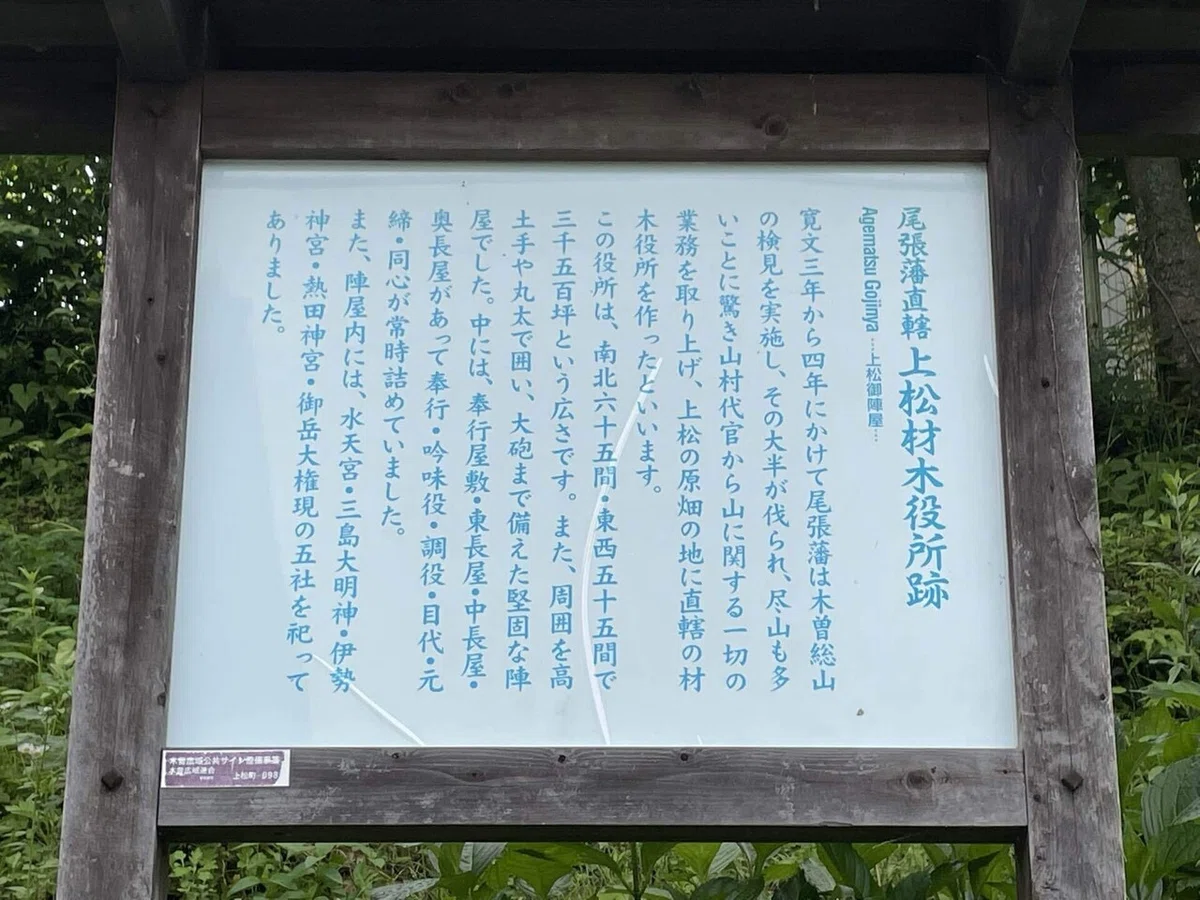 尾張藩直轄 上松材木役所跡
Agematsu Gojinya …上松御陣屋…
寛文三年から四年にかけて尾張藩は木曽総山
の検見を実施し、その大半が伐られ、尽山も多
いことに驚き山村代官から山に関する一切の
業務を取り上げ、上松の原畑の地に直轄の材
木役所を作ったといいます。
この役所は、南北六十五間・東西五十五間で
三千五百坪という広さです。また、周囲を高
土手や丸太で囲い、大砲まで備えた堅固な陣
屋でした。中には、奉行屋敷・東長屋・中長屋・
奥長屋があって奉行・吟味役・調役・目代・元
締・同心が常時詰めていました。
また、陣屋内には、水天宮・三島大明神・伊勢
神宮・熱田神宮・御岳大権現の五社を祀って
ありました。
木曽広域公共サイン整備事業
木曽広域連合
上松町